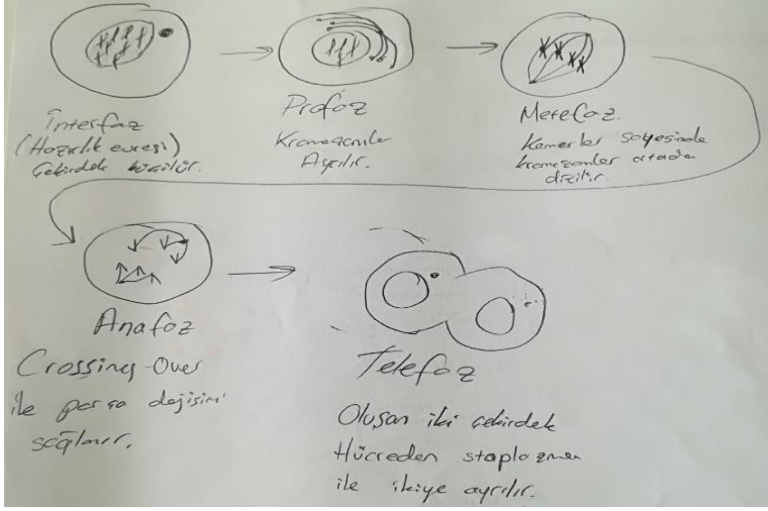 İnterfaz
(Hazırlık evresi)
Çekirdek büzülür.
Profaz
Kromozomlar
Ayrılır.
Metefaz.
Kemerler sayesinde
kromozomlar ortada
dizilir.
Anafoz
Crossing-Over
ile parça değişimi
sağlanır.
Telefaz
Oluşan iki çekirdek
Hücreden stoplazma
ile ikiye ayrılır.